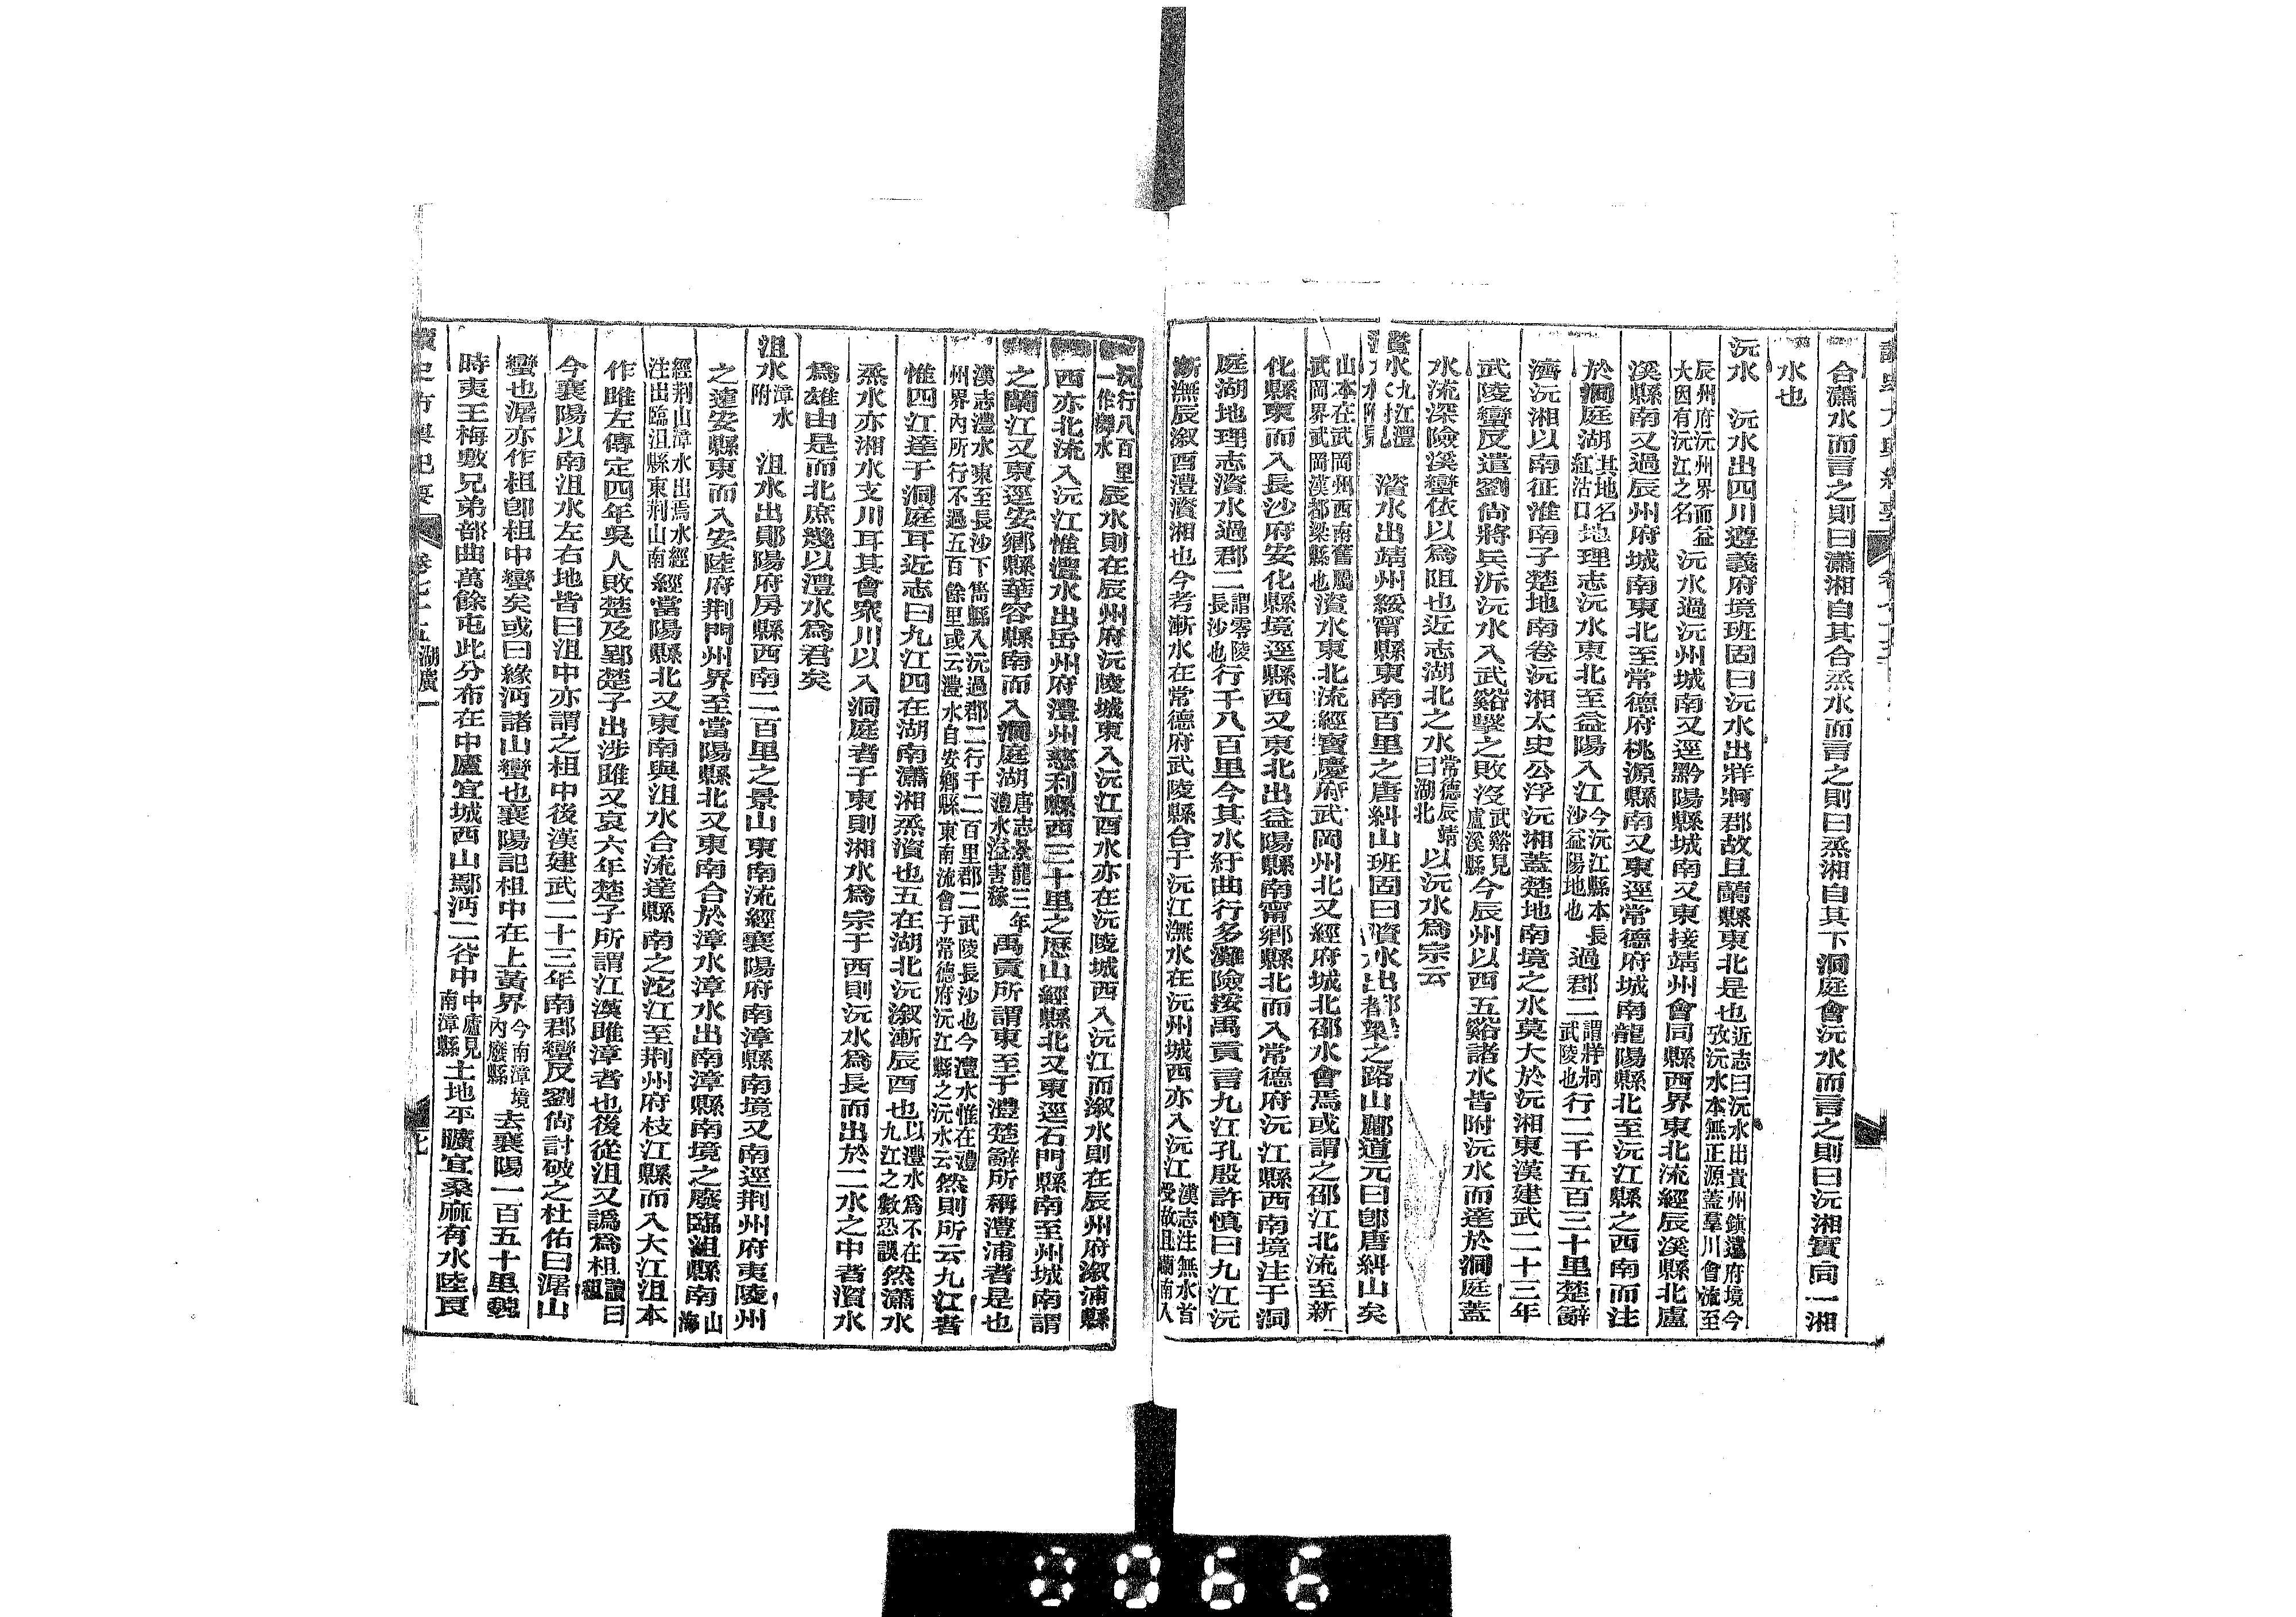 合瀟水而言之則曰瀟湘自其合烝水而言之則曰烝湘自其下洞庭會沅水而言之則曰沅湘實同一湘
水也
沅水　沅水出四川遵義府境班固曰沅水出牂牁郡故且蘭縣東北是也近志曰沅水出貴州鎮遠府境今攷沅水本無正源蓋羣川會流至
辰州府沅州界而益大因有沅江之名沅水過沅州城南又逕黔陽縣城南又東接靖州會同縣西界東北流經辰溪縣北盧
溪縣南又過辰州府城南東北至常德府桃源縣南又東逕常德府城南龍陽縣北至沅江縣之西南而注
於洞庭湖其地名紅沽口地理志沅水東北至益陽入江今沅江縣本長沙益陽地也過郡二謂牂牁武陵也行二千五百三十里楚辭
濟沅湘以南征淮南子楚地南卷沅湘太史公浮沅湘蓋楚地南境之水莫大於沅湘東漢建武二十三年
武陵蠻反遣劉尙將兵泝沅水入武谿擊之敗沒武谿見盧溪縣今辰州以西五谿諸水皆附沅水而達於洞庭蓋
水流深險溪蠻依以爲阻也近志湖北之水常德辰靖曰湖北以沅水爲宗云
資水九江澧　資水出靖州綏甯縣東南百里之唐糾山班固曰資水出都梁之路山酈道元曰卽唐糾山矣
山本在武岡州西南舊屬武岡界武岡漢都梁縣也資水東北流經寶慶府武岡州北又經府城北邵水會焉或謂之邵江北流至新
化縣東而入長沙府安化縣境逕縣西又東北出益陽縣南甯鄉縣北而入常德府沅江縣西南境注于洞
庭湖地理志資水過郡二謂零陵長沙也行千八百里今其水紆曲行多灘險按禹貢言九江孔殷許慎曰九江沅
漸潕辰溆酉澧資湘也今考漸水在常德府武陵縣合于沅江潕水在沅州城西亦入沅江漢志注無水首受故且蘭南入
沅行八百里一作潕水辰水則在辰州府沅陵城東入沅江酉水亦在沅陵城西入沅江而溆水則在辰州府溆浦縣
西亦北流入沅江惟澧水出岳州府澧州慈利縣西三十里之歷山經縣北又東逕石門縣南至州城南謂
之蘭江又東逕安鄉縣華容縣南而入洞庭湖唐志景龍三年澧水溢害稼禹貢所謂東至于澧楚辭所稱澧浦者是也
漢志澧水東至長沙下雋縣入沅過郡二行千二百里郡二武陵長沙也今澧水惟在澧州界內所行不過五百餘里或云澧水自安鄉縣東南流會于常德府沅江縣之沅水云然則所云九江者
惟四江達于洞庭耳近志曰九江四在湖南瀟湘烝資也五在湖北沅溆漸辰酉也以澧水爲不在九江之數恐誤然瀟水
烝水亦湘水支川耳其會衆川以入洞庭者于東則湘水爲宗于西則沅水爲長而出於二水之中者濱水
爲雄由是而北庶幾以澧水爲君矣
沮水漳水附　沮水出鄖陽府房縣西南二百里之景山東南流經襄陽府南漳縣南境又南逕荆州府夷陵州
之遠安縣東而入安陸府荆門州界至當陽縣北又東南合於漳水漳水出南漳縣南境之廢臨沮縣南山海
經荆山漳水出焉水經注出臨沮縣東荆山南經當陽縣北又東南與沮水合流逹縣南之沱江至荆州府枝江縣而入大江沮本
作雎左傳定四年吳人敗楚及郢楚子出涉雎又哀六年楚子所謂江漢雎漳者也後從沮又譌爲柤讀曰租
今襄陽以南沮水左右地皆曰沮中亦謂之柤中後漢建武二十三年南郡蠻反劉尙討破之杜佑曰潳山
蠻也潳亦作柤卽柤中蠻矣或曰緣沔諸山蠻也襄陽記柤中在上黃界今南漳境內廢縣去襄陽一百五十里魏
時夷王梅敷兄弟部曲萬餘屯此分布在中廬宜城西山鄢沔二谷中中廬見南漳縣土地平曠宜桑麻有水陸良
讀史方輿紀要　卷七十五湖廣一